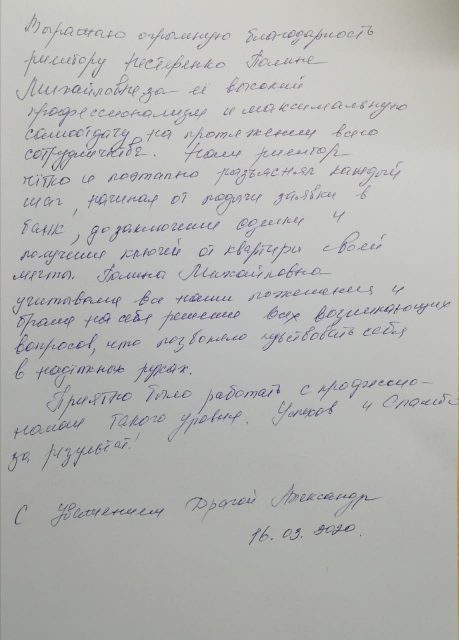 Выражаю огромную благодарность
риелтору Нестеренко Галине
Михайловне за её высокий
профессионализм и максимальную
самоотдачу на протяжении всего
сотрудничества. Наш риелтор
чётко и поэтапно разъяснял каждый
шаг, начиная от подачи заявки в
банк, до заключения сделки и
получения ключей от квартиры своей
мечты. Галина Михайловна
учитывала все наши пожелания и
брала на себя решение всех возникающих
вопросов, что позволяло чувствовать себя
в надёжных руках.
Приятно было работать с професио-
налом такого уровня. Успехов и Спасибо
за результат!
С Уважением Драгой Александр
16.03.2020.